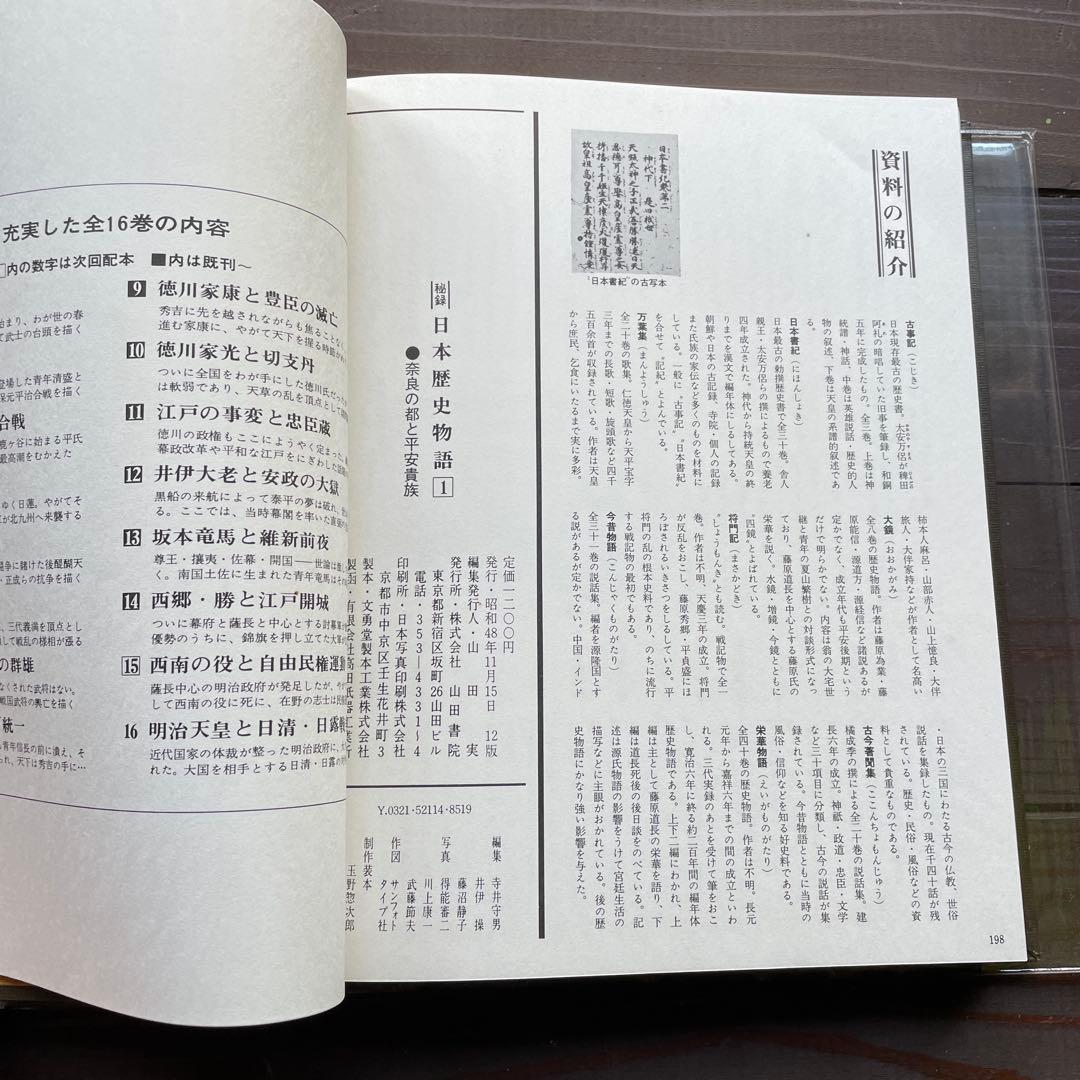 資料の紹介
日本書紀巻第二
神代下
"日本書紀"の古写本
古事記(こじき)
日本現存最古の歴史書。太安万侶が稗田
阿礼の暗唱していた旧事を筆録し、和銅
五年に完成したもの。全三巻。上巻は神
統譜・神話、中巻は英雄説話・歴史的人
物の叙述、下巻は天皇の系譜的叙述であ
る。
日本書紀(にほんしょき)
日本最古の勅撰歴史書で全三十巻。舎人
親王・太安万侶らの撰によるもので養老
四年成立された。神代から持統天皇の終
りまでを漢文で編年体にしるしてある。
朝鮮や日本の古記録、寺院、個人の記録
また氏族の家伝など多くのものを材料に
している。一般に"古事記""日本書紀"
を合せて"記紀"とよんでいる。
万葉集(まんようしゅう)
全二十巻の歌集。仁徳天皇から天平宝字
三年までの長歌・短歌・旋頭歌など四千
五百余首が収録されている。作者は天皇
から庶民、乞食にいたるまで実に多彩。
柿本人麻呂・山部赤人・山上憶良・大伴
旅人・大伴家持などが作者として名高い
大鏡(おおかがみ)
全八巻の歴史物語。作者は藤原為業・藤
原能信・源道方・源経信など諸説あるが
定かでなく、成立年代も平安後期という
だけで明らかでない。内容は翁の大宅世
継と青年の夏山繁樹との対談形式になっ
ており、藤原道長を中心とする藤原氏の
栄華を説く。水鏡・増鏡・今鏡とともに
"四鏡"とよばれている。
将門記(まさかどき)
"しょうもんき"とも読む。戦記物で全一
巻。作者は不明。天慶三年の成立。将門
が反乱をおこし、藤原秀郷・平貞盛にほ
ろぼされるいきさつをしるしている。平
将門の乱の根本史料であり、のちに流行
する戦記物の最初でもある。
今昔物語(こんじゃくものがたり)
全三十一巻の説話集。編者を源隆国とす
る説があるが定かでない。中国・インド
・日本の三国にわたる古今の仏教、世俗
説話を集録したもの。現在千四十話が残
されている。歴史・民俗・風俗などの資
料として貴重なものである。
古今著聞集(ここんちょもんじゅう)
橘成季の撰による全二十巻の説話集。建
長六年の成立。神祇・政道・忠臣・文学
など三十項目に分類し、古今の説話が集
録されている。今昔物語とともに当時の
風俗・信仰などを知る好史料である。
栄華物語(えいがものがたり)
全四十巻の歴史物語。作者は不明。長元
元年から嘉祥六年までの間の成立といわ
れる。三代実録のあとを受けて筆をおこ
し、寛治六年に終る約二百年間の編年体
歴史物語である。上下二編にわかれ、上
編は主として藤原道長の栄華を語り、下
編は道長死後の後日談をのべている。記
述は源氏物語の影響をうけて宮廷生活の
描写などに主眼がおかれている。後の歴
史物語にかなり強い影響を与えた。
198
秘録 日本歴史物語 1
●奈良の都と平安貴族
定価一二〇〇円
発行・昭和48年11月15日 12版
編集発行人・山田 実
発行所・株式会社 山田書院
東京都新宿区坂町26山田ビル
電話・353―4331~4
印刷所・日本写真印刷株式会社
京都市中京区壬生花井町3
製本・文勇堂製本工業株式会社
製函・有限会社高田氏器工業所
Y.0321・52114・8519
編集 寺井守男
井伊 操
藤沼静子
写真 得能審二
川上康一
武藤節夫
作図 サンフォト
タイプ社
制作装本 玉野惣次郎
充実した全16巻の内容
内の数字は次回配本 ■内は既刊~
9 徳川家康と豊臣の滅亡
秀吉に先を越されながらも焦ることなく
進む家康に、やがて天下を握る時節が
10 徳川家光と切支丹
ついに全国をわが手にした徳川氏だっ
は軟弱であり、天草の乱を頂点として
11 江戸の事変と忠臣蔵
徳川の政権もここにようやく定まった。
幕政改革や平和な江戸をにぎわした
12 井伊大老と安政の大獄
黒船の来航によって泰平の夢は破れ、
る。ここでは、当時幕閣を率いた直弼の
13 坂本竜馬と維新前夜
尊王・攘夷・佐幕・開国――世論は
く。南国土佐に生まれた青年竜馬は
14 西郷・勝と江戸開城
ついに幕府と薩長を中心とする討幕軍
優勢のうちに、錦旗を押し立てた大軍
15 西南の役と自由民権運動
薩長中心の明治政府が発足したが、
して西南の役に死に、在野の志士は
16 明治天皇と日清・日露戦
近代国家の体裁が整った明治政府に、
れた。大国を相手とする日清・日露の
始まり、わが世の春
て武士の台頭を描く
登場した青年清盛と
保元平治合戦を描く
合戦
鹿ヶ谷に始まる平氏
最高潮をむかえた
ゆく日蓮。やがてそ
が北九州へ来襲する
争に賭けた後醍醐天
・正成らの抗争を描く
、三代義満を頂点とし
して戦乱の様相が漲る
の群雄
なくされた武将はない。
戦国武将の興亡を描く
統一
も青年信長の前に潰え、そ
られ、天下は秀吉の手に…